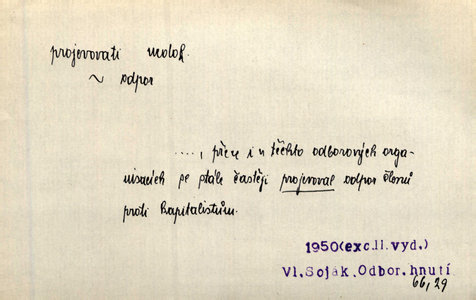 projevovati nedok.
~ odpor
...., přece i u těchto odborových orga-
nisacích se stále častěji projevoval odpor členů
proti kapitalistům.
1950(exc.II.vyd.)
Vl.Soják.Odbor.hnutí
66,29